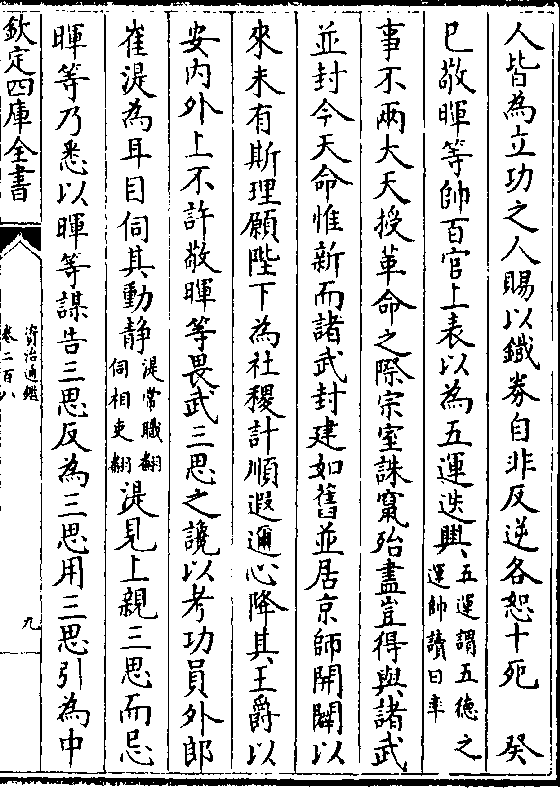 人皆為立功之人賜以鐵券自非反逆各恕十死　癸
巳敬暉等帥百官上表以為五運迭興五運謂五德之運帥讀曰率
事不兩大天授革命之際宗室誅竄殆盡豈得與諸武
並封今天命惟新而諸武封建如舊並居京師開闢以
來未有斯理願陛下為社稷計順遐邇心降其王爵以
安内外上不許敬暉等畏武三思之讒以考功員外郎
崔湜為耳目伺其動静湜常職翻伺相吏翻湜見上親三思而忌
暉等乃悉以暉等謀告三思反為三思用三思引為中
欽定四庫全書
資治通鑑
卷二百八
九